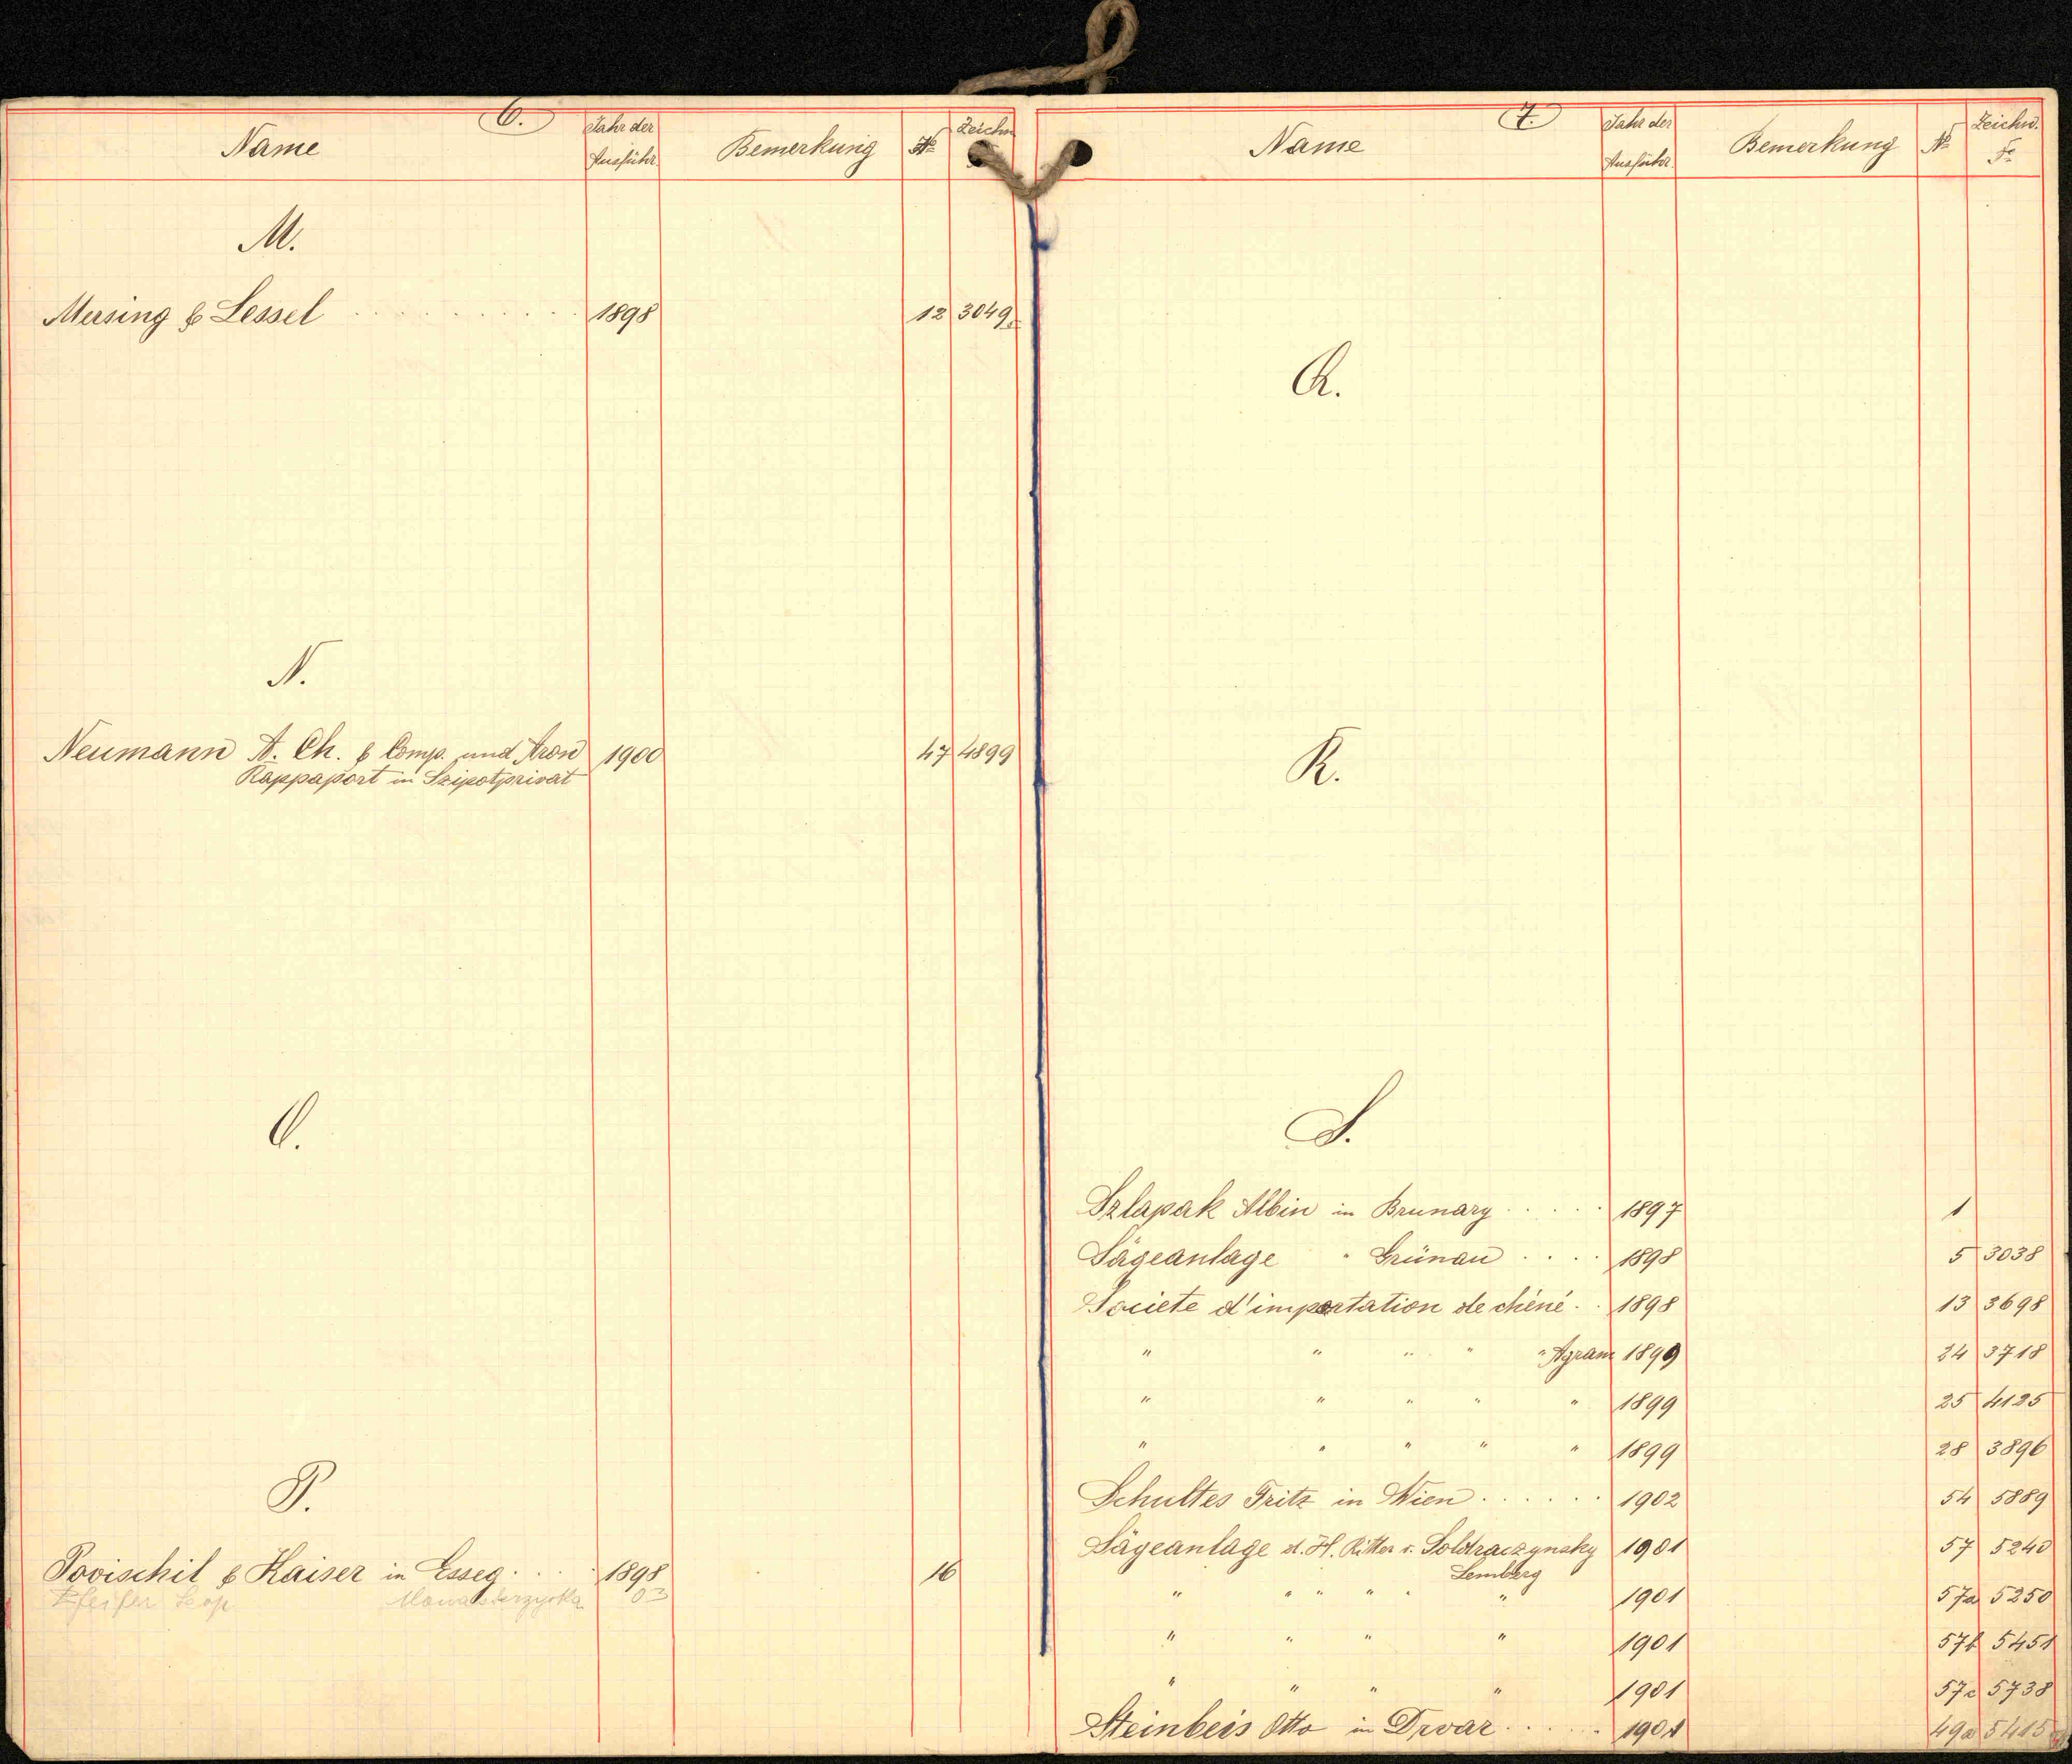 6.
Name Jahr der Ausführ. Bemerkung No Zeichn
M.
Mersing & Lessel . . . . . . . . . . 1898 12 3049
N.
Neumann A. Ch. & Comp. und Aron 1900 47 4899
Rappaport in Szipotprivat
O.
P.
Povischil & Kaiser in Esseg . . . . 1898 16
Pfeifer Leop 03
7.
Name Jahr der Ausführ. Bemerkung No Zeichn.
Q.
R.
S.
Szlapak Albin in Brunary . . . . . 1897 1
Sägeanlage " Grünau . . . . 1898 5 3038
Societe d'importation de chéné . . 1898 13 3698
" " " " " Agram 1899 24 3718
" " " " " 1899 25 4125
" " " " " 1899 28 3896
Schultes Fritz in Wien . . . . . . 1902 54 5889
Sägeanlage d. H. Ritter v. Soldraczynsky 1901 57 5240
Lemberg
" " " " " " 1901 57a 5250
" " " " 1901 57b 5451
" " " " 1901 57c 5738
Steinbeis Otto in Drvar . . . . . . 1901 49a 5415